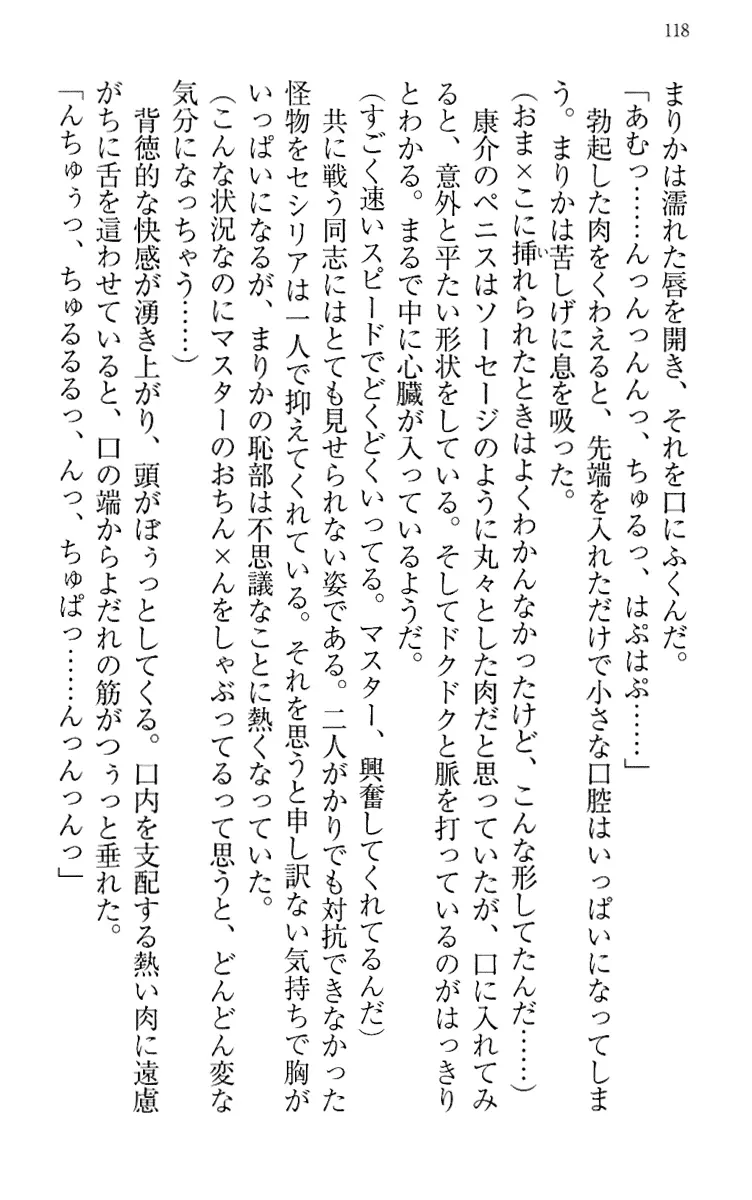 118
まりかは濡れた唇を開き、それを口にふくんだ。
「あむっ……んっんっんんっ、ちゅるっ、はぷはぷ……」
勃起した肉をくわえると、先端を入れただけで小さな口腔はいっぱいになってしま
う。まりかは苦しげに息を吸った。
(おま×こに挿れられたときはよくわかんなかったけど、こんな形してたんだ……)
康介のペニスはソーセージのように丸々とした肉だと思っていたが、口に入れてみ
ると、意外と平たい形状をしている。そしてドクドクと脈を打っているのがはっきり
とわかる。まるで中に心臓が入っているようだ。
(すごく速いスピードでどくどくいってる。マスター、興奮してくれてるんだ)
共に戦う同志にはとても見せられない姿である。二人がかりでも対抗できなかった
怪物をセシリアは一人で抑えてくれている。それを思うと申し訳ない気持ちで胸が
いっぱいになるが、まりかの恥部は不思議なことに熱くなっていた。
(こんな状況なのにマスターのおちん×んをしゃぶってるって思うと、どんどん変な
気分になっちゃう……)
背徳的な快感が湧き上がり、頭がぼぅっとしてくる。口内を支配する熱い肉に遠慮
がちに舌を這わせていると、口の端からよだれの筋がつぅっと垂れた。
「んちゅぅっ、ちゅるるるっ、んっ、ちゅぱっ……んっんっんっ」